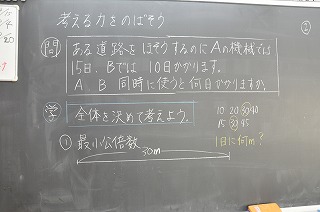 考える力をのばそう
問 ある道路をほそうするのにAの機械では
15日、Bでは10日かかります。
A、B同時に使うと何日かかりますか。
学 全体を決めて考えよう。
10 20 30 40
15 30 45
① 最小公倍数
1日に何m?
30m
②